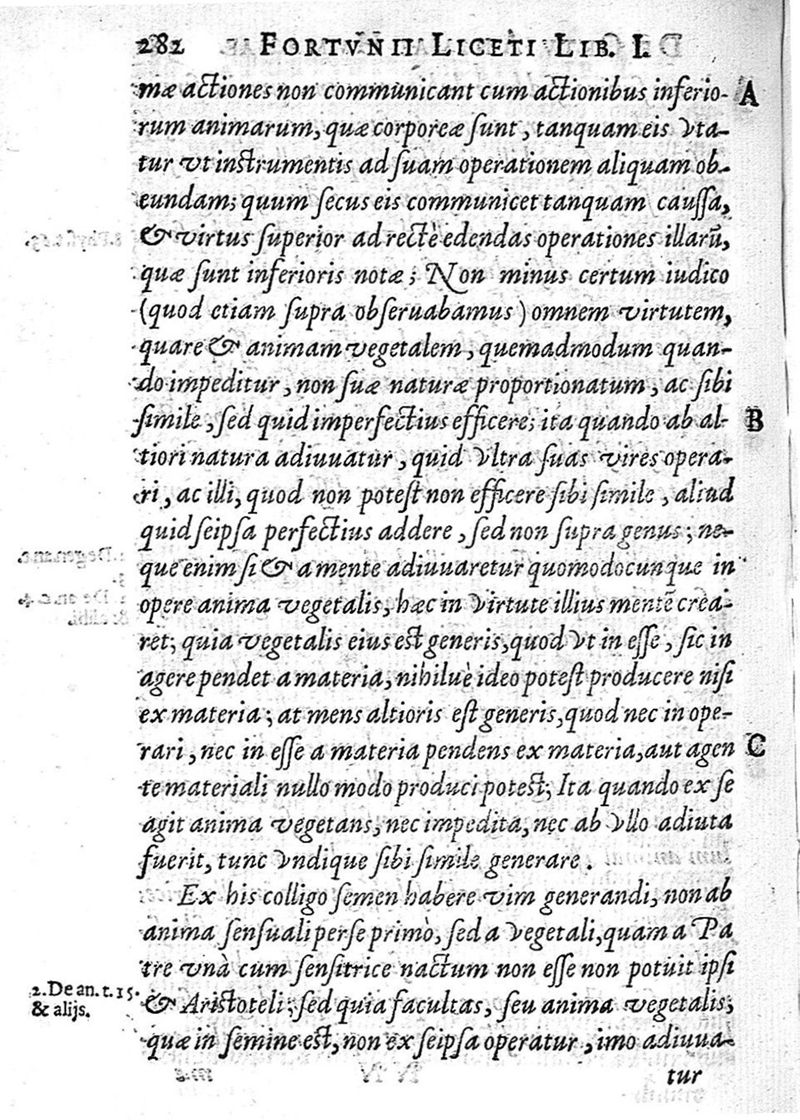 282 FORTVNII LICETI LIB. I.
mæ actiones non communicant cum actionibus inferio- A
rum animarum, quæ corporeæ sunt, tanquam eis vta-
tur vt instrumentis ad suam operationem aliquam ob-
eundam; quum secus eis communicet tanquam caussa,
& virtus superior ad rectè edendas operationes illarū,
quæ sunt inferioris notæ; Non minus certum iudico
(quod etiam supra obseruabamus) omnem virtutem,
quare & animam vegetalem, quemadmodum quan-
do impeditur, non suæ naturæ proportionatum, ac sibi
simile, sed quid imperfectius efficere; ita quando ab al- B
tiori natura adiuuatur, quid vltra suas vires opera-
ri, ac illi, quod non potest non efficere sibi simile, aliud
quid seipsa perfectius addere, sed non supra genus; ne-
que enim si & a mente adiuuaretur quomodocunque in
opere anima vegetalis, hæc in virtute illius mentē crea-
ret; quia vegetalis eius est generis, quod vt in esse, sic in
agere pendet a materia, nihiluè ideo potest producere nisi
ex materia; at mens altioris est generis, quod nec in ope-
rari, nec in esse a materia pendens ex materia, aut agen C
te materiali nullo modo produci potest; Ita quando ex se
agit anima vegetans, nec impedita, nec ab vllo adiuta
fuerit, tunc vndique sibi simile generare.
Ex his colligo semen habere vim generandi, non ab
anima sensuali per se primò, sed a vegetali, quam a Pa
tre vnà cum sensitrice nactum non esse non potuit ipsi
2. De an. t. 15. & Aristoteli; sed quia facultas, seu anima vegetalis,
& alijs. quæ in semine est, non ex seipsa operatur, imo adiuua-
tur